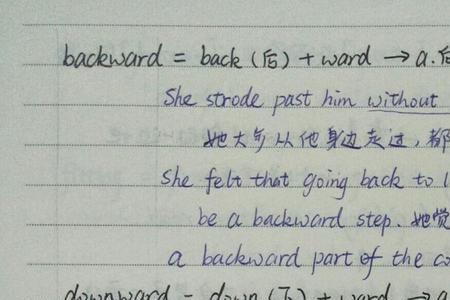 backward = back (后) + ward → a.后
She strode past him without
她大步从他身边走过，都
She felt that going back to l
be a backward step. 她觉
a backward part of the co
downward = down (下) + ward → a